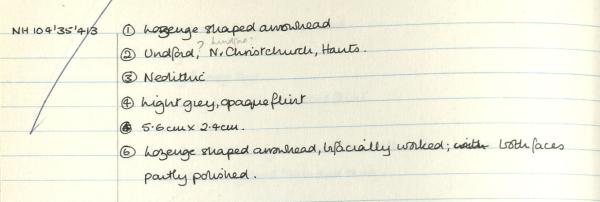 NH 104'35'413 ① Lozenge shaped arrowhead
② Undford, ? N. Christchurch, Hants.
③ Neolithic
④ Light grey, opaque flint
⑤ 5.6cm x 2.4cm.
⑥ Lozenge shaped arrowhead, bifacially worked; both faces
partly polished.